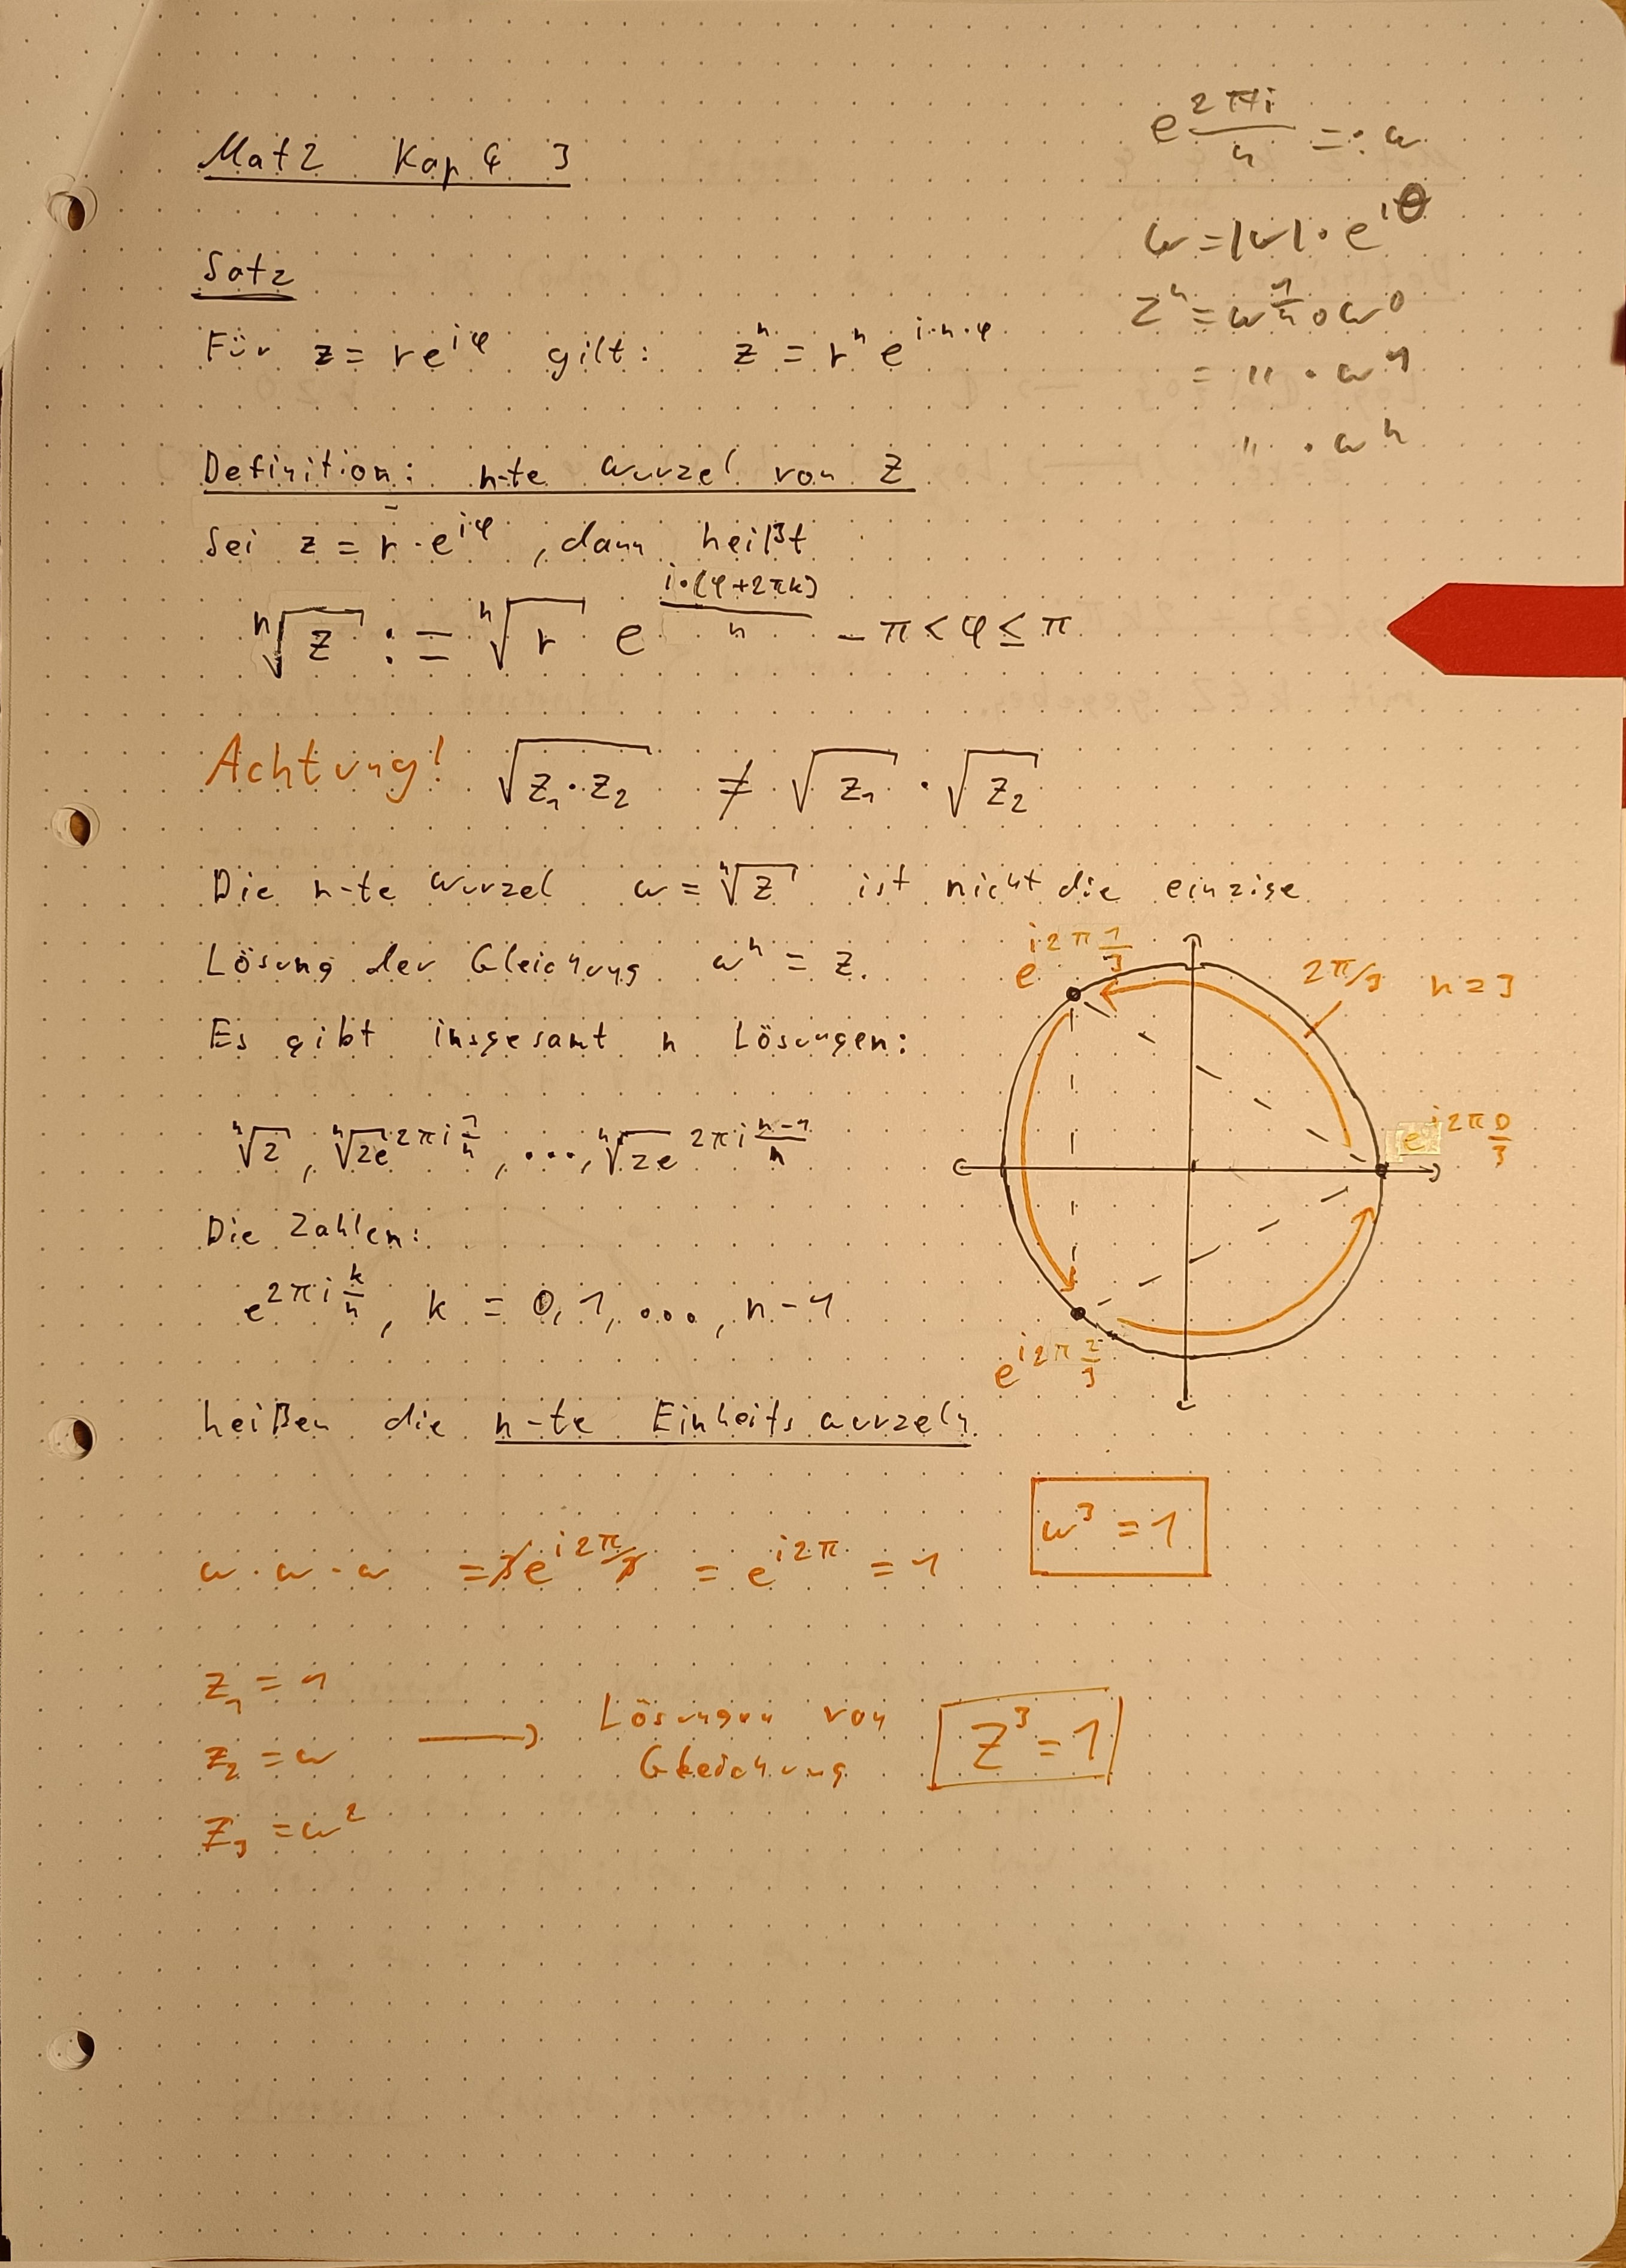 Mat2 Kap 4 3
e^(2πi/n) =: w
w = |w| · e^(iθ)
z^n = w^(1/n) · w^0
= " · w^1
" · w^n
Satz
Für z = re^(iφ) gilt: z^n = r^n e^(i·n·φ)
Definition: n-te Wurzel von Z
Sei z = r · e^(iφ), dann heißt
ⁿ√z := ⁿ√r e^(i·(φ+2πk)/n) -π < φ ≤ π
Achtung! √(z₁·z₂) ≠ √z₁ · √z₂
Die n-te Wurzel w = ⁿ√z ist nicht die einzige
Lösung der Gleichung w^n = z.
Es gibt insgesamt n Lösungen:
ⁿ√z, ⁿ√z e^(2πi 1/n), ..., ⁿ√z e^(2πi (n-1)/n)
Die Zahlen:
e^(2πi k/n), k = 0, 1, ..., n-1
heißen die n-te Einheitswurzeln
e^(i2π 1/3)
2π/3 n = 3
e^(i2π 0/3)
e^(i2π 2/3)
w · w · w = 3e^(i2π/3) = e^(i2π) = 1
w³ = 1
z₁ = 1
z₂ = w → Lösungen von Gleichung Z³ = 1
z₃ = w²